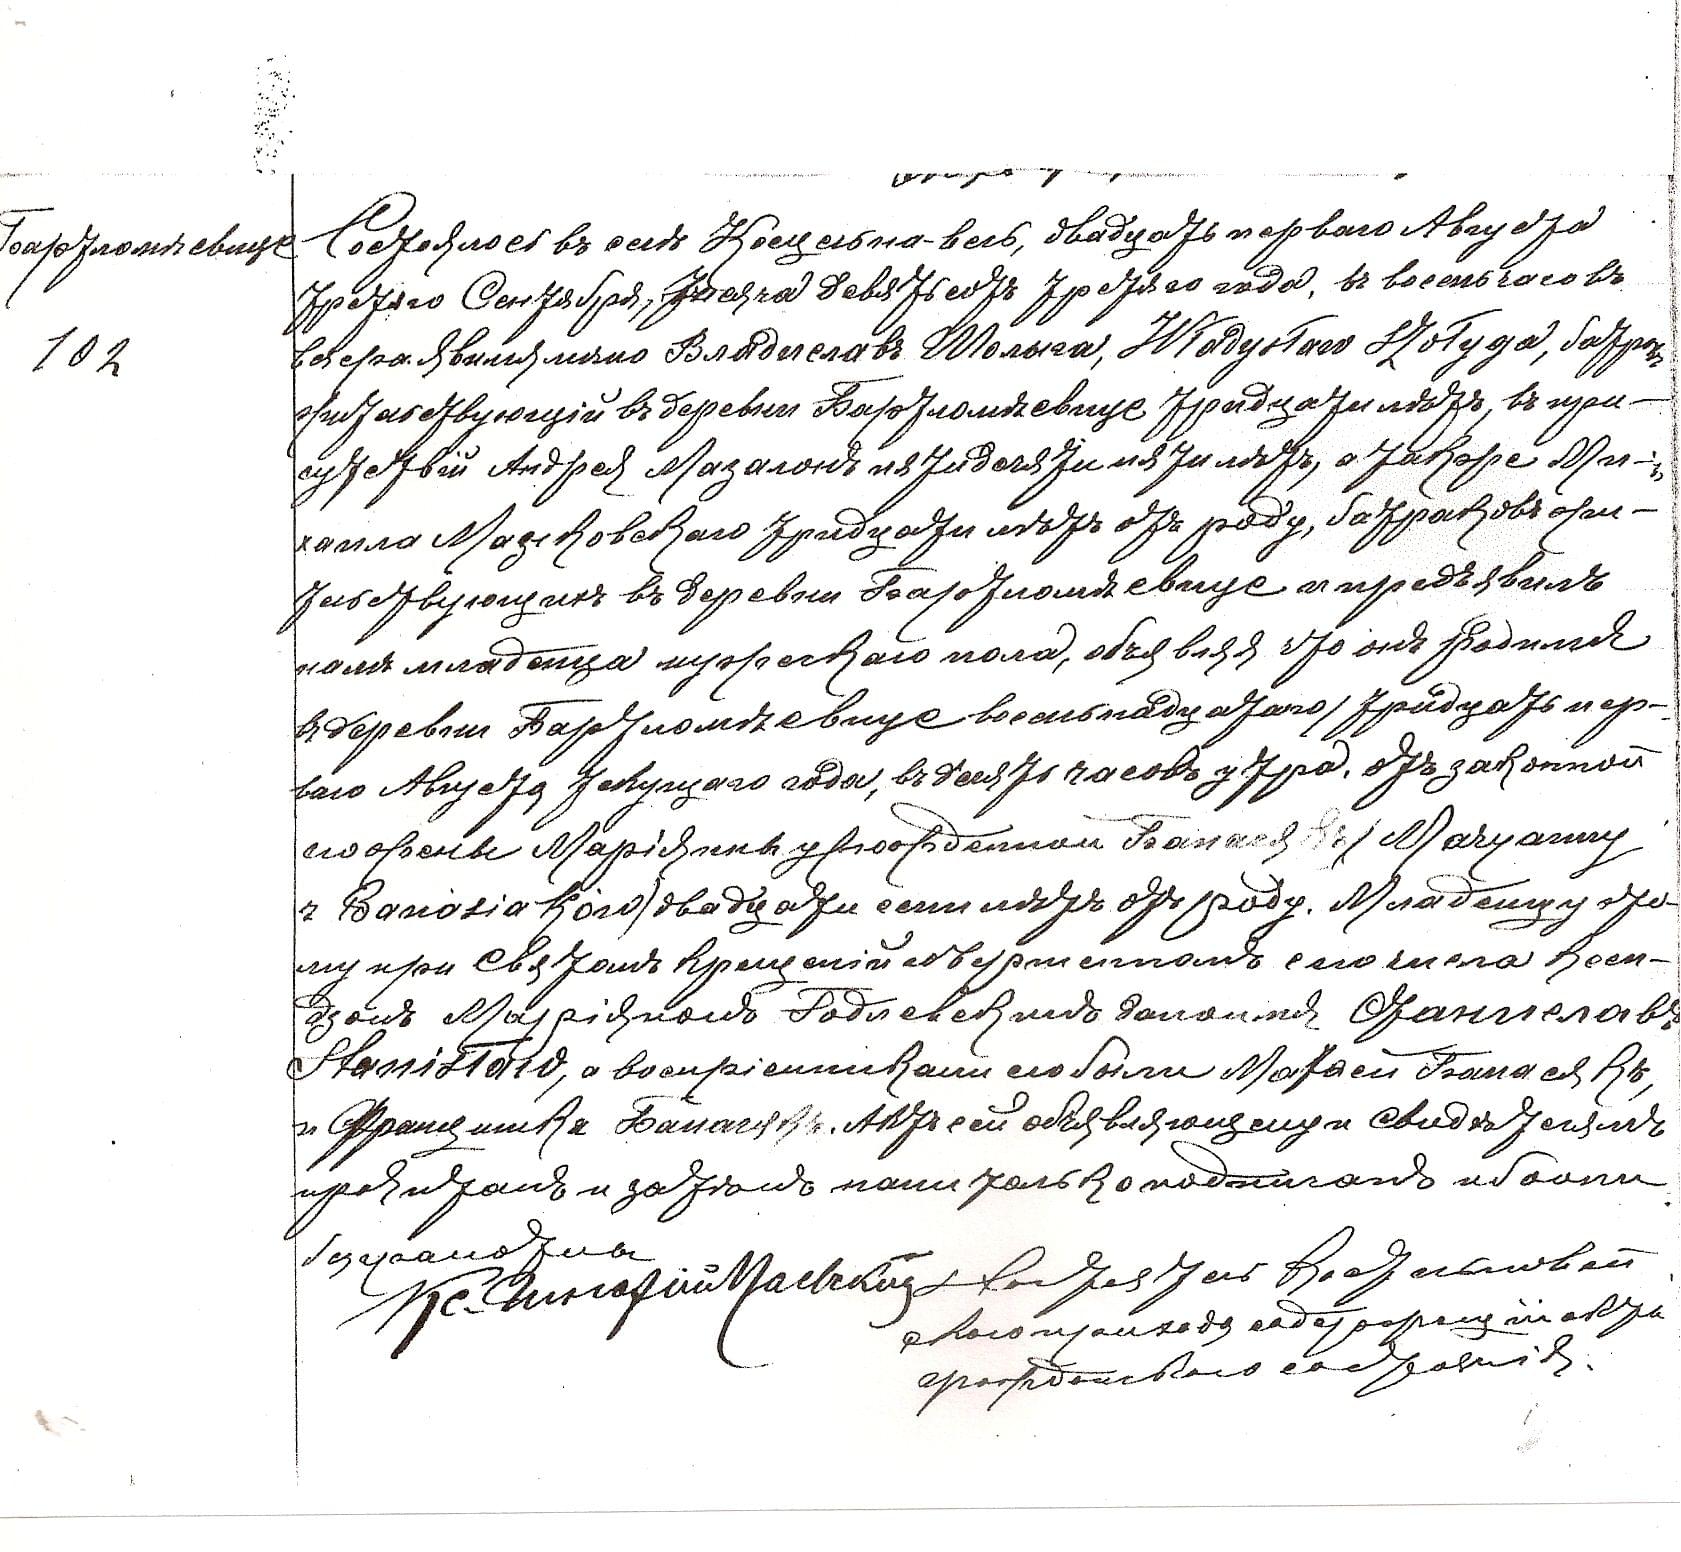 Бартломѣевице
102
Состоялось въ селѣ Косцельна-весь, двадцать перваго Августа
третяго Сентября, тысяча девятьсотъ третяго года, въ восемь часовъ
вечера. явился лично Владиславъ Шолыга, Władysław, батракъ
жительствующій въ деревни Бартломѣевице тридцати лѣтъ, въ при-
сутствій Андрея пятидесяти пяти лѣтъ, а также Ми-
хаила тридцати лѣтъ отъ роду, батраковъ жи-
тельствующихъ въ деревни Бартломѣевице и предъявилъ
намъ младенца мужескаго пола, объявляя что онъ родился
въ деревни Бартломѣевице восемьнадцатаго / тридцать пер-
ваго Августа текущаго года, въ десять часовъ утра. отъ законной
его жены Маріянны урожденной Банасякъ / Maryanny
z Banasiaków) двадцати семи лѣтъ отъ роду. Младенцу это-
му при святомъ крещеній совершенномъ сего числа Ксен-
дзомъ Маріяномъ Годлевскимъ дано имя Станиславъ
Stanisław, а воспріемниками его были Матвей Банасякъ,
и Францишка Банасякъ. Актъ сей объявляющему и свидѣтелямъ
прочитанъ и затѣмъ нами только подписанъ ибо они
безграмотны
Кс. Содержатель
скаго прихода содержащій акты
гражданскаго состоянія.